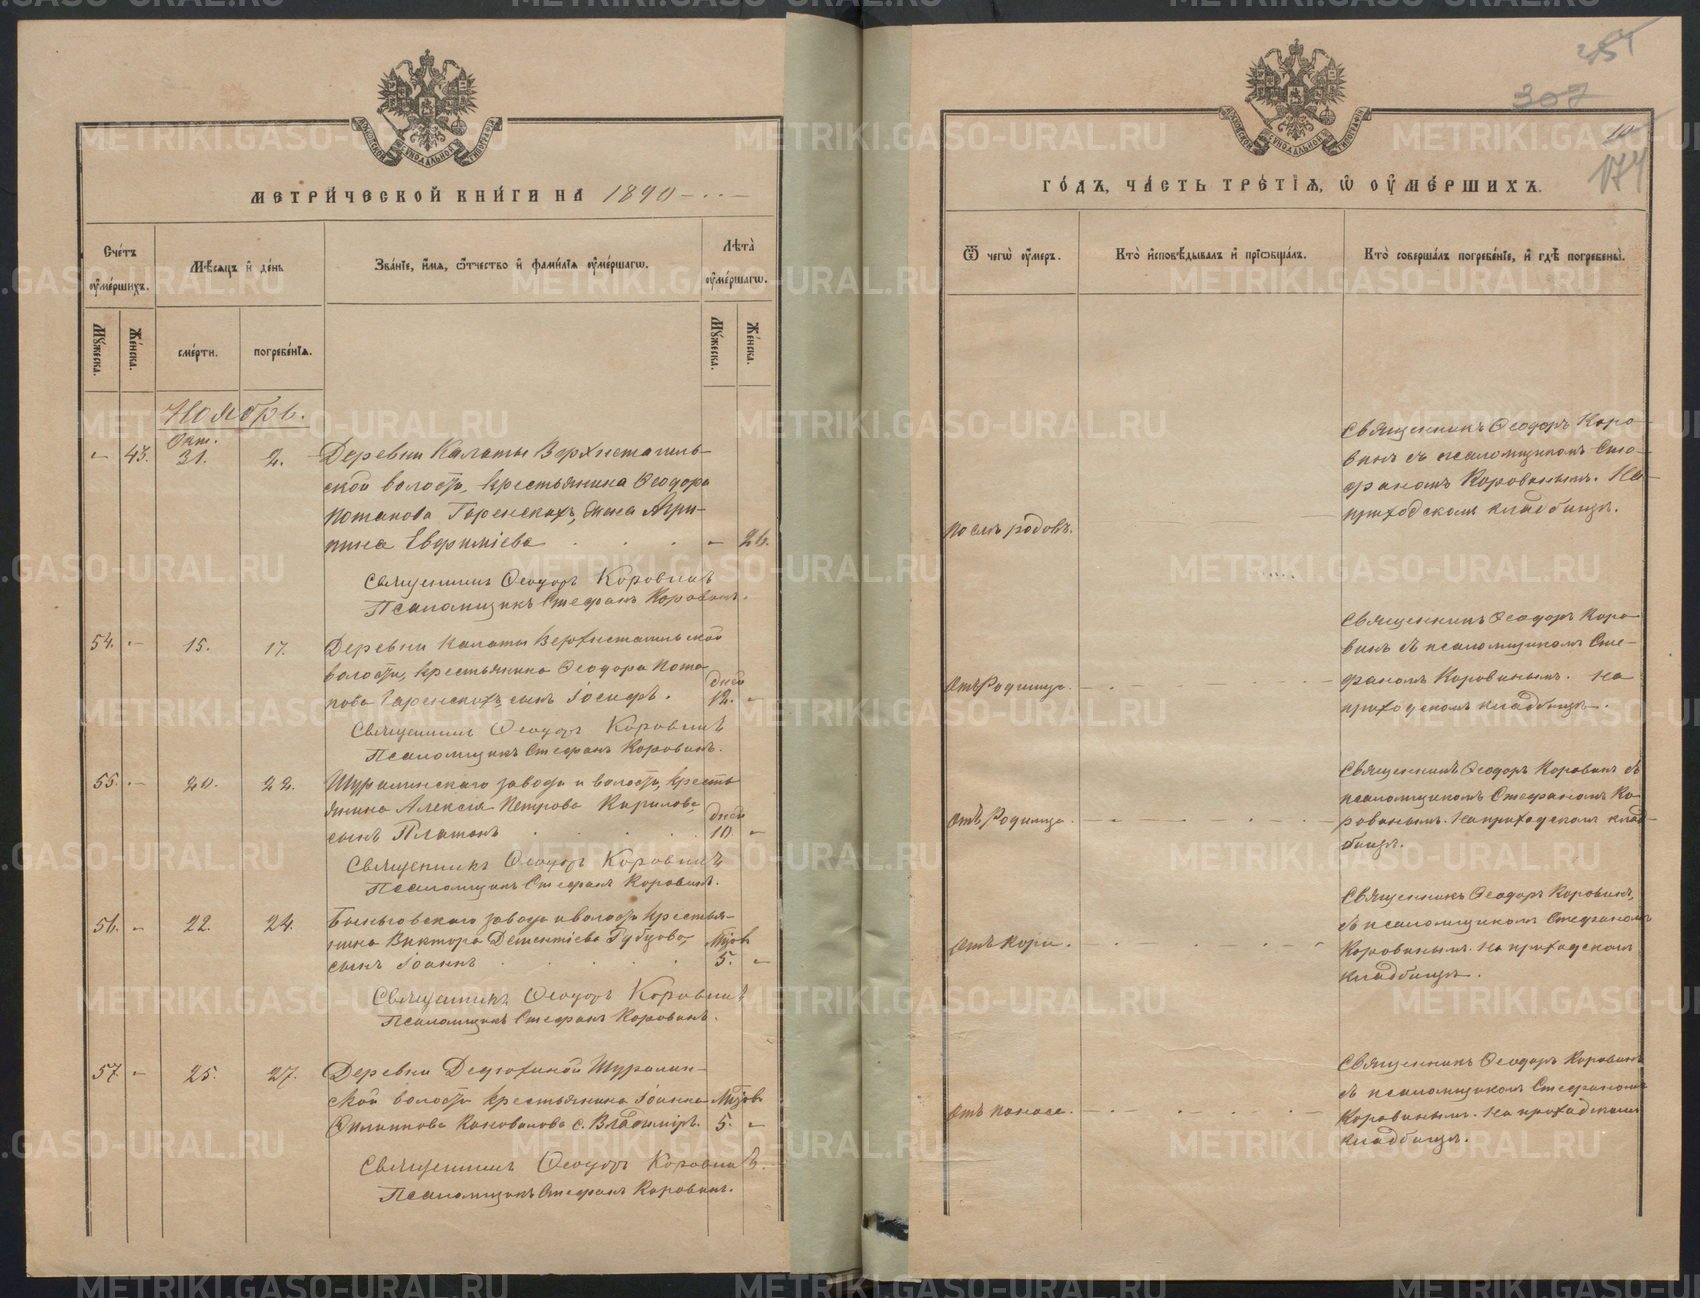 МЕТРИ́ЧЕСКОЙ КНИ́ГИ НА 1890
Сче́тъ ᲂу҆ме́ршихъ.
Мѣ́сяцъ и҆ де́нь
Зва́нїе, и҆́мѧ, ѻ҆́тчество и҆ фами́лїѧ ᲂу҆ме́ршагѡ.
Лѣ́та ᲂу҆ме́ршагѡ.
Мꙋ́жеска.
Же́нска.
сме́рти.
погребе́нїѧ.
Мꙋ́жеска.
Же́нска.
Ноябрь.
Окт.
43. 31. 2. Деревни Калаты Верхнетагиль-
ской волости, крестьянина Ѳеодора
Потапова Гаренскихъ, жена Агри-
пина Евѳиміева 26.
Священникъ Ѳеодоръ Коровинъ
Псаломщикъ Стефанъ Коровинъ.
54. 15. 17. Деревни Калаты Верхнетагильской
волости, крестьянина Ѳеодора Пота-
пова Гаренскихъ, сынъ Іосифъ. дней 12.
Священникъ Ѳеодоръ Коровинъ
Псаломщикъ Стефанъ Коровинъ.
55. 20. 22. Шуралинскаго завода и волости, кресть-
янина Алексія Петрова Кирилова,
сынъ Платонъ дней 10.
Священникъ Ѳеодоръ Коровинъ
Псаломщикъ Стефанъ Коровинъ.
56. 22. 24. Быньговскаго завода и волости крестья-
нина Виктора Дементіева Губцова,
сынъ Іоаннъ 5.
Священникъ Ѳеодоръ Коровинъ
Псаломщикъ Стефанъ Коровинъ.
57. 25. 27. Деревни Дедюхиной Шуралин-
ской волости крестьянина Іоанна
Филиппова Коновалова с. Владиміръ. 5.
Священникъ Ѳеодоръ Коровинъ.
Псаломщикъ Стефанъ Коровинъ.
307
174
ГО́ДЪ, ЧА́СТЬ ТРЕ́ТЇѦ, Ѡ҆ ОУ҆МЕ́РШИХЪ.
Ѿ чегѡ̀ ᲂу҆́меръ.
Кто̀ и҆сповѣ́дывалъ и҆ прїѡбща́лъ.
Кто̀ соверша́лъ погребе́нїе, и҆ гдѣ̀ погребены̀.
Послѣ родовъ.
Священникъ Ѳеодоръ Коро-
винъ съ псаломщикомъ Сте-
фаномъ Коровинымъ. На
приходскомъ кладбищѣ.
Отъ Родимца.
Священникъ Ѳеодоръ Коро-
винъ съ псаломщикомъ Сте-
фаномъ Коровинымъ. На
приходскомъ кладбищѣ.
Отъ Родимца.
Священникъ Ѳеодоръ Коровинъ съ
псаломщикомъ Стефаномъ Ко-
ровинымъ. На приходскомъ клад-
бищѣ.
Отъ Кори.
Священникъ Ѳеодоръ Коровинъ,
съ псаломщикомъ Стефаномъ
Коровинымъ. На приходскомъ
кладбищѣ.
Отъ поноса.
Священникъ Ѳеодоръ Коровинъ
съ псаломщикомъ Стефаномъ
Коровинымъ. На приходскомъ
кладбищѣ.
METRIKI.GASO-URAL.RU